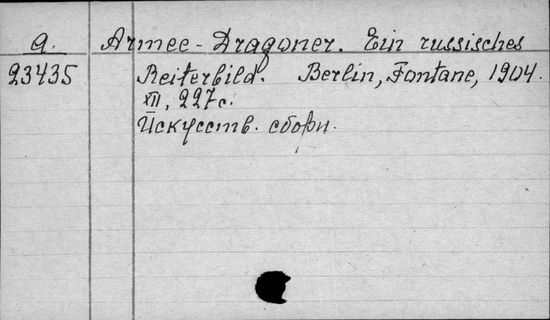 a. Armee-Dragoner. Ein russisches
23435 Reiterbild. Berlin, Fontane, 1904.
XII, 227 c.
Искусств. сборн.